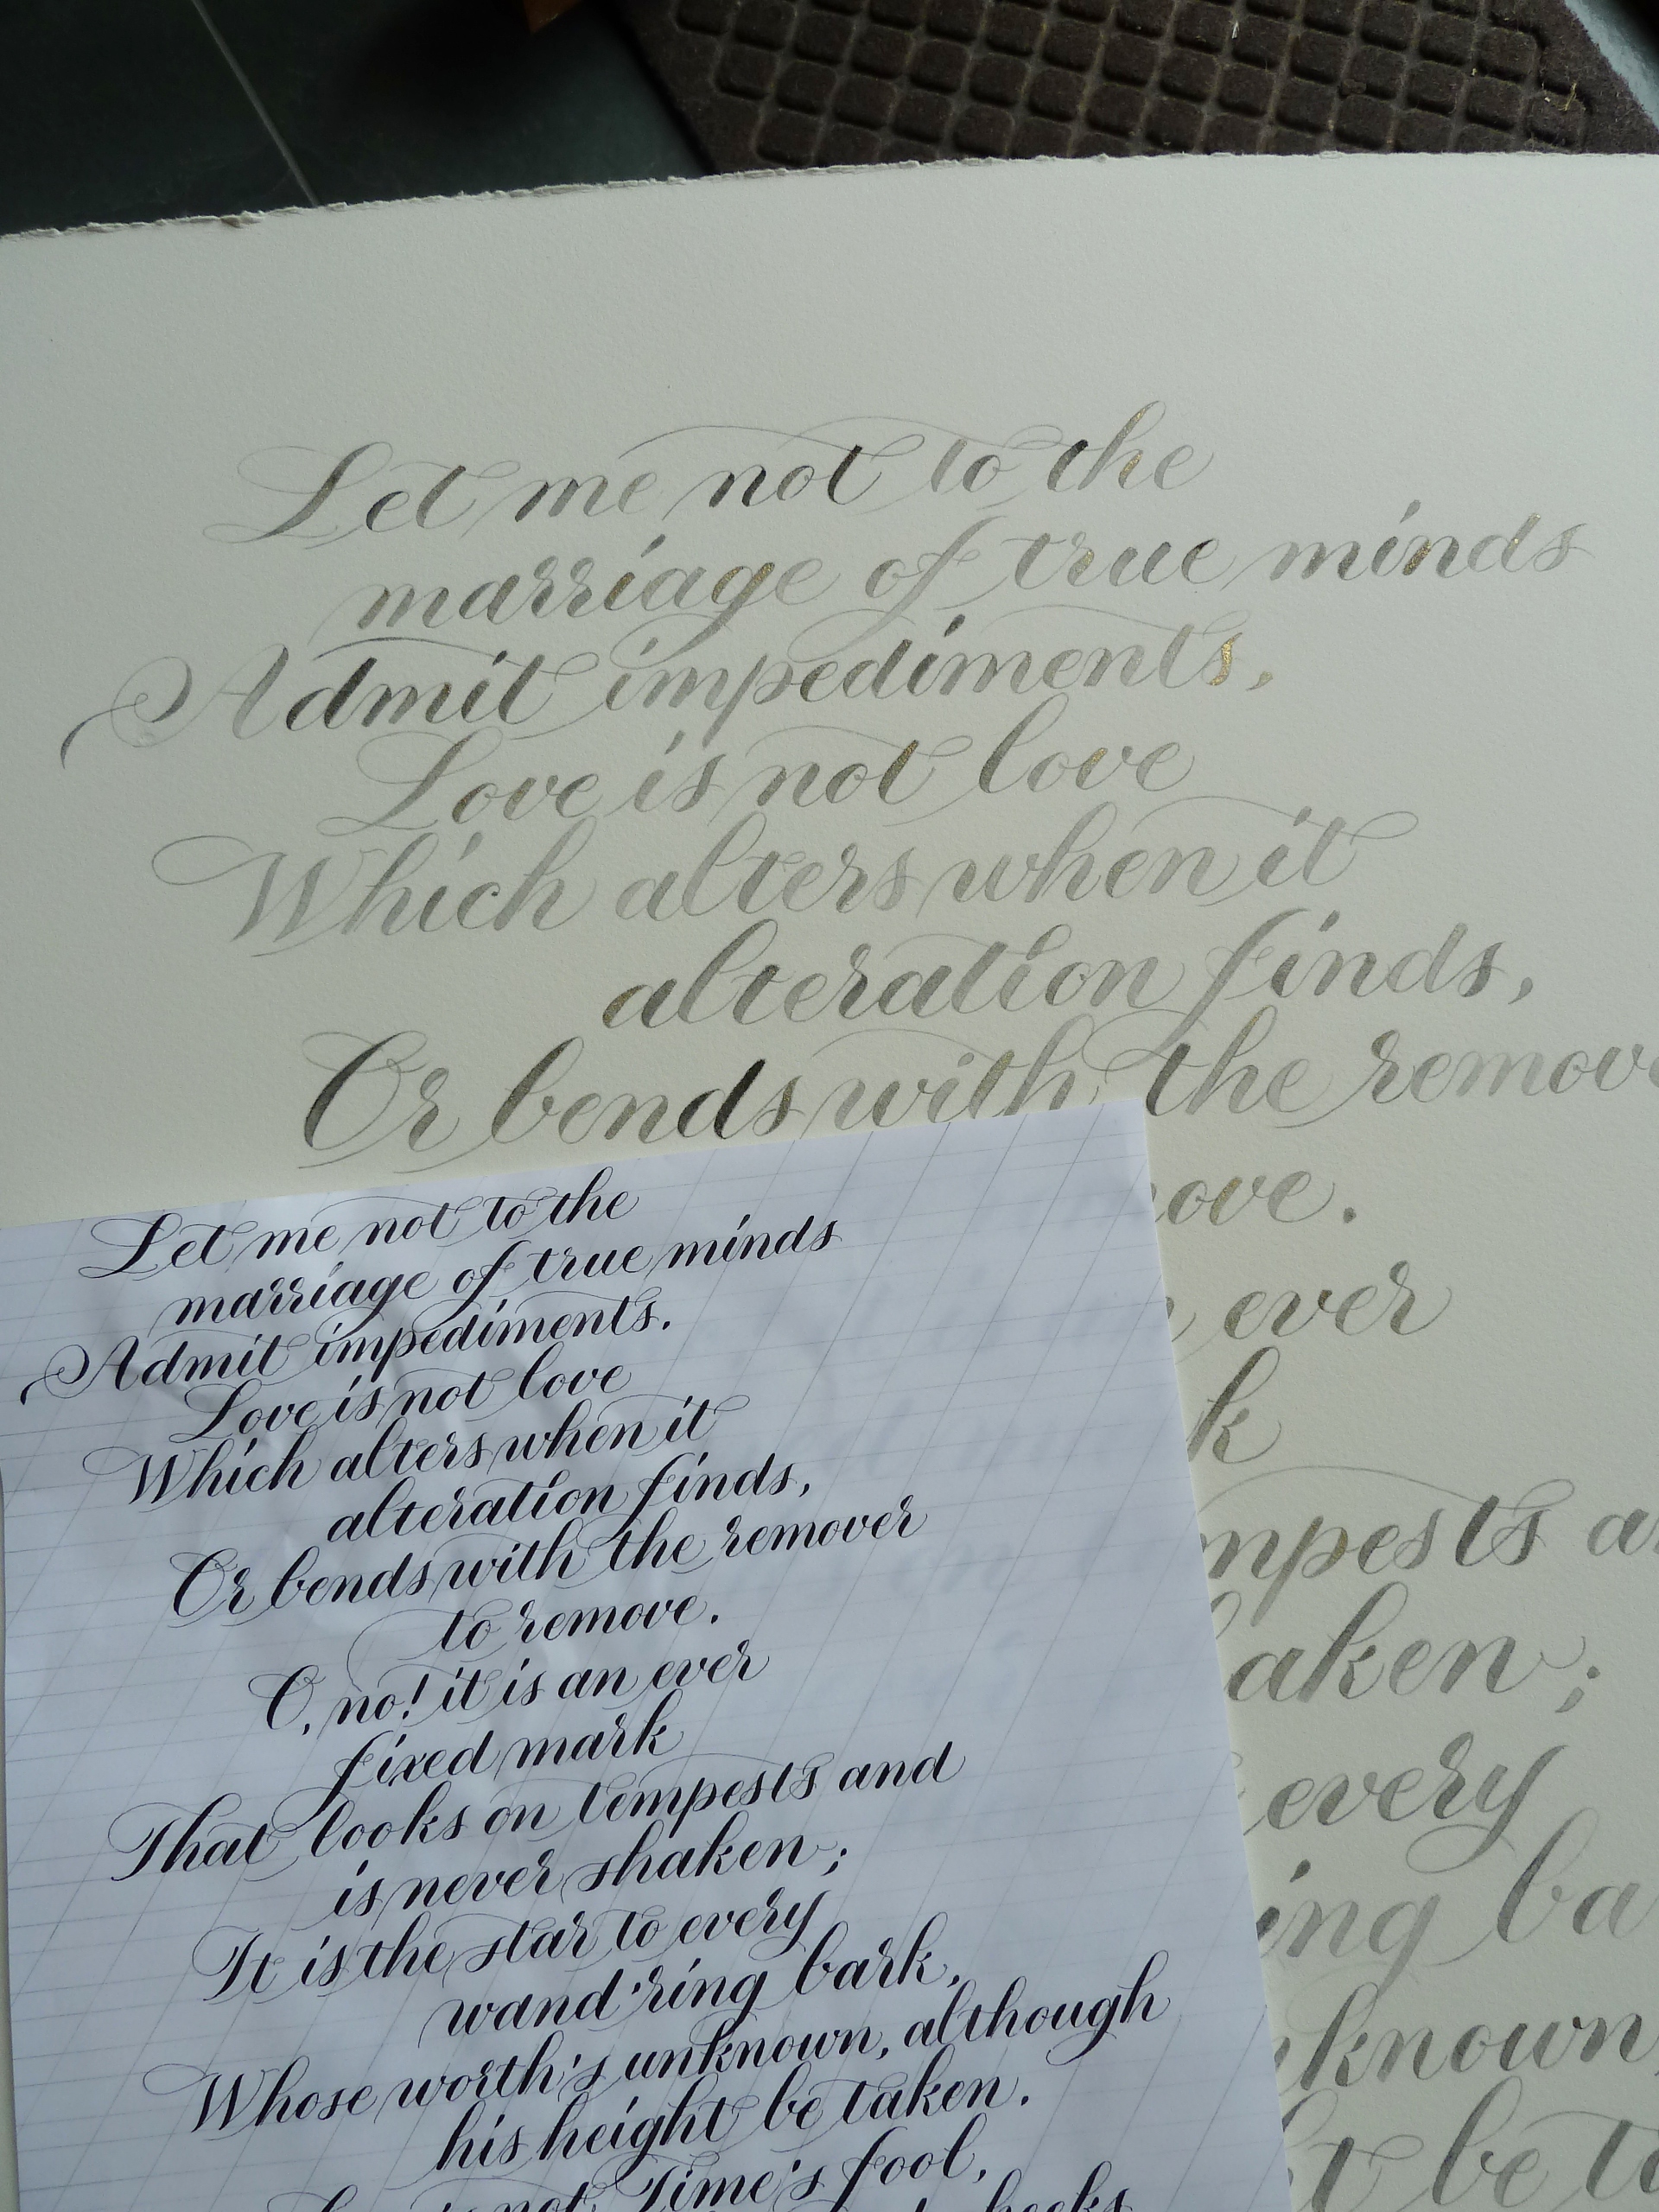 Let me not to the
marriage of true minds
Admit impediments.
Love is not love
Which alters when it
alteration finds,
Or bends with the remove
ove.
ever
k
mpests a
haken;
every
ing ba
known,
t be ta
Let me not to the
marriage of true minds
Admit impediments.
Love is not love
Which alters when it
alteration finds,
Or bends with the remover
to remove.
O, no! it is an ever
fixed mark
That looks on tempests and
is never shaken;
It is the star to every
wand'ring bark,
Whose worth's unknown, although
his height be taken.
not Time's fool,